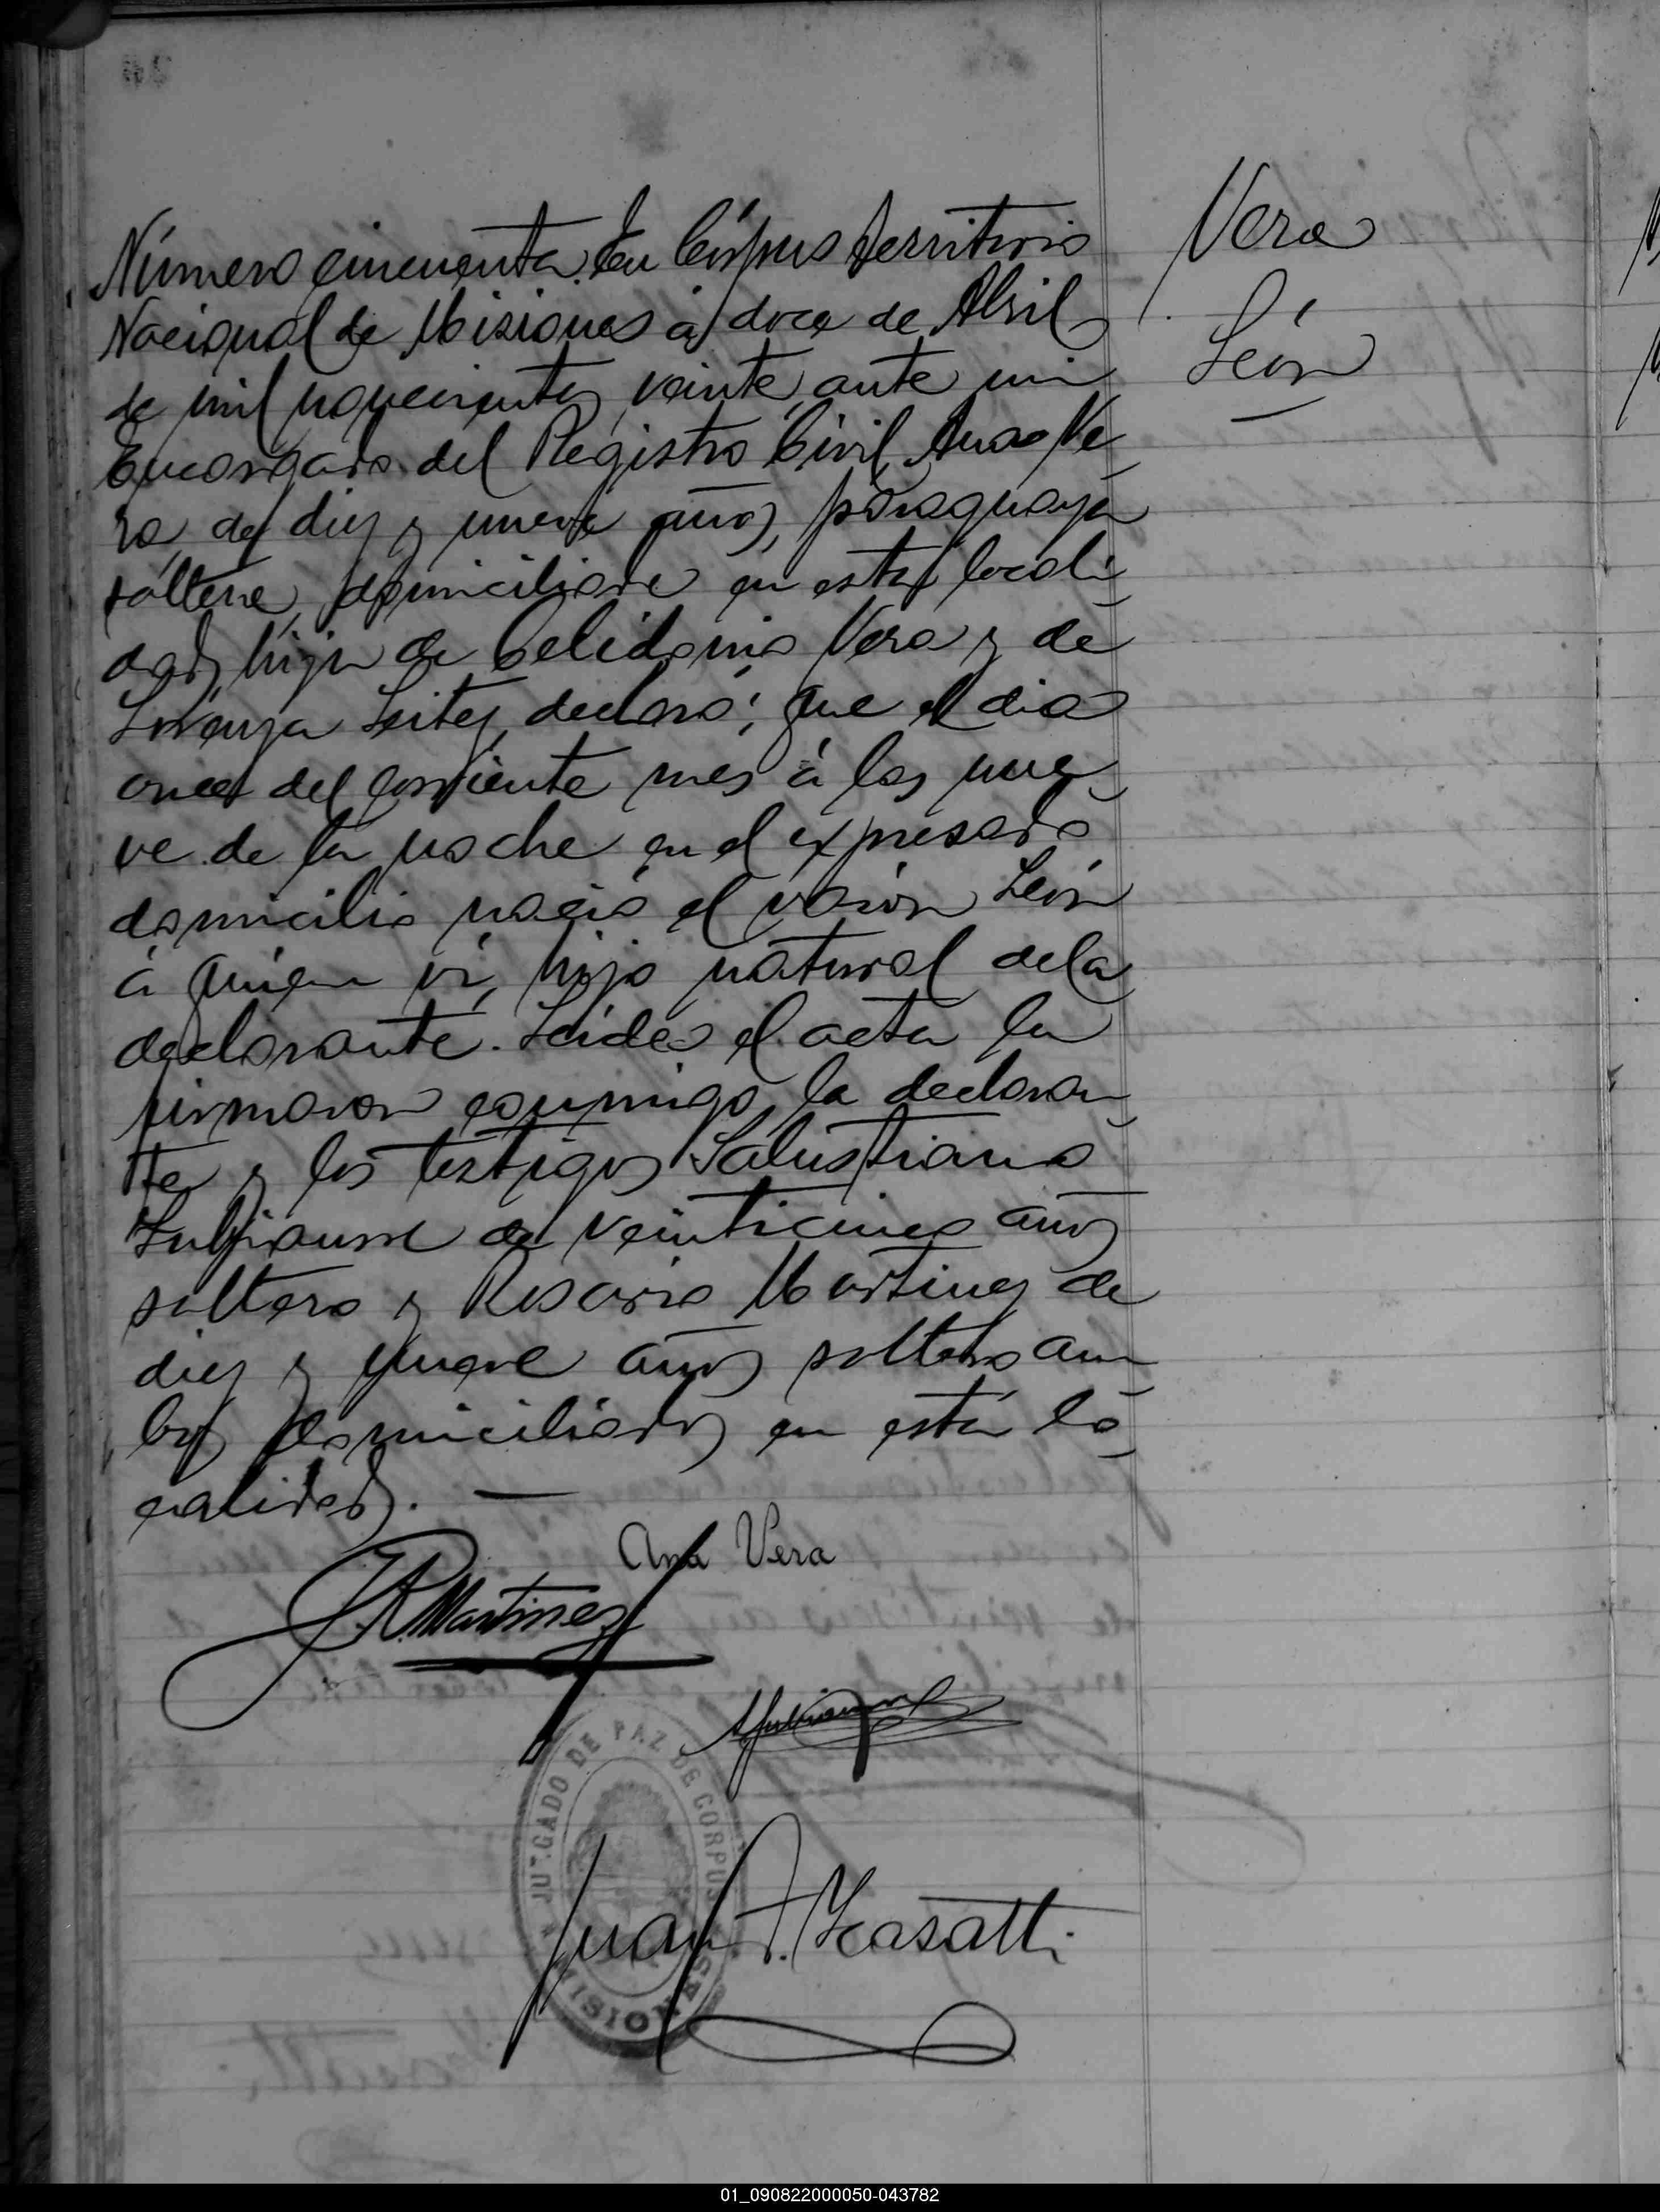 Vera
León
Número cincuenta. En Córpus Territorio
Nacional de Misiones á doce de Abril
de mil novecientos veinte, ante mi
Encargado del Registro Civil, Ana Ve-
ra, de diez y nueve años, paraguaya
soltera, domiciliada en esta locali-
dad, hija de Celidonio Vera y de
Lorenza Leites, declaró; que el dia
once del corriente mes á las nue-
ve de la noche en el expresado
domicilio nació el varón León
á quien ví, hijo natural de la
declarante. Leida el acta la
firmaron conmigo, la declaran-
te y los testigos Salustiano
de veinticinco años
soltero y Rosario Martinez de
diez y nueve años soltero am-
bos domiciliados en esta lo-
calidad.
Ana Vera
R. Martinez
JUZGADO DE PAZ DE CORPUS
MISIONES
Juan
01_090822000050-043782